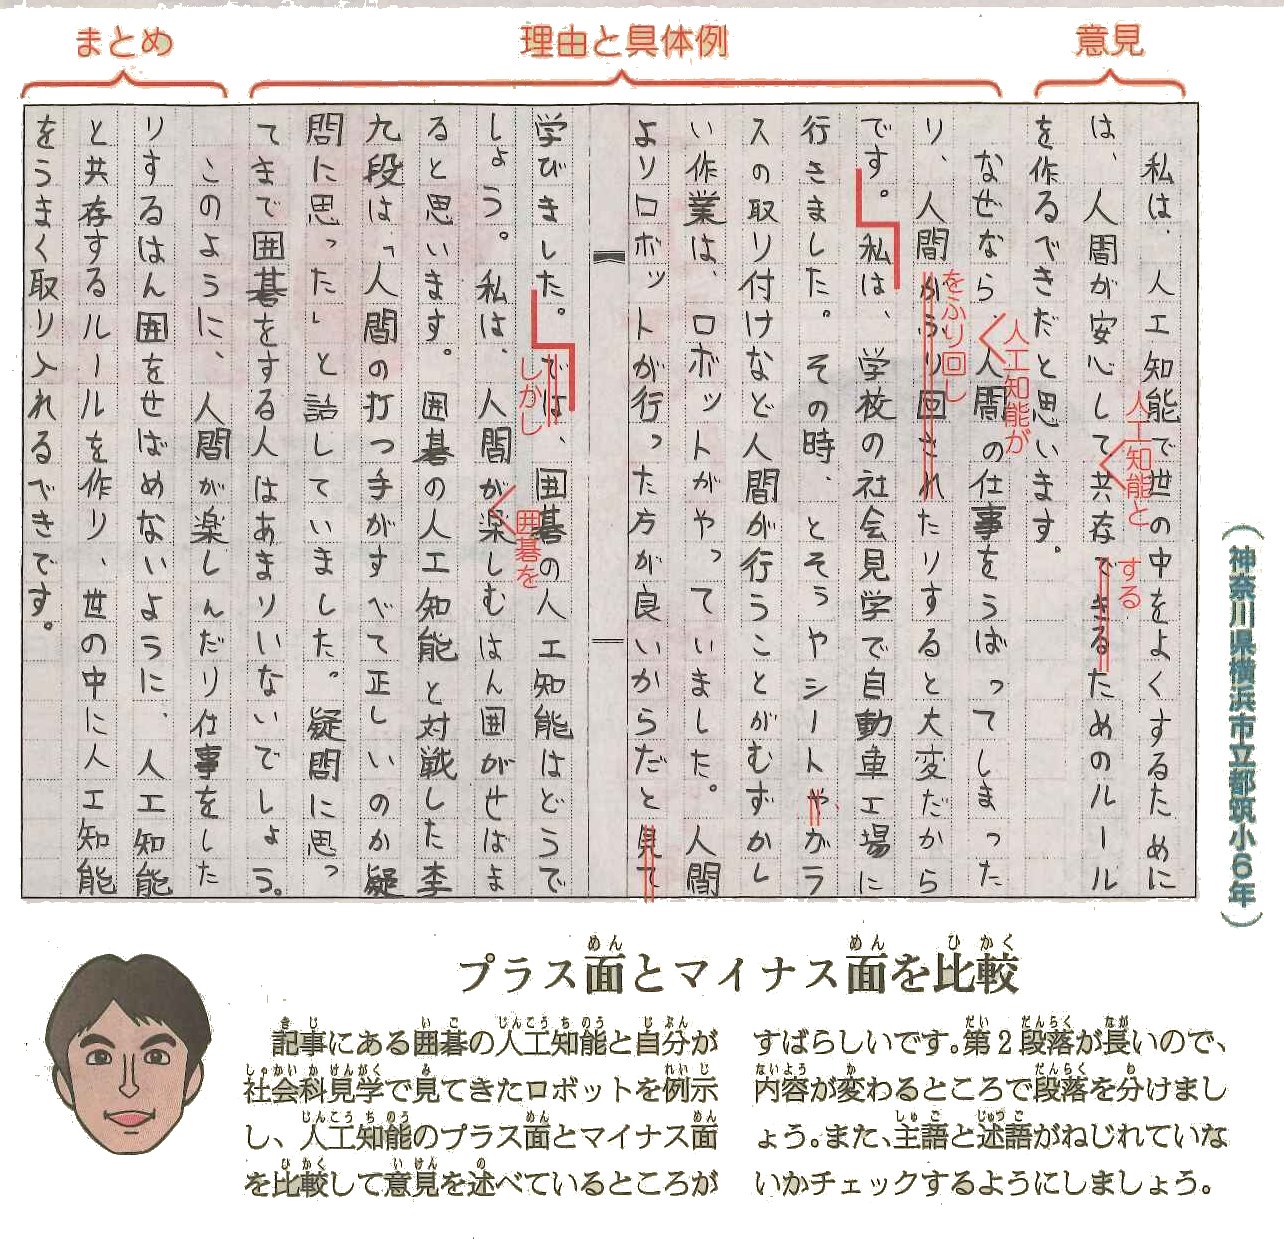 意見
理由と具体例
まとめ
私は、人工知能で世の中をよくするために
は、人間が安心して共存できるためのルール
を作るべきだと思います。
なぜなら、人間の仕事をうばってしまった
り、人間がふり回されたりすると大変だから
です。私は、学校の社会見学で自動車工場に
行きました。その時、とそうやシートやガラ
スの取り付けなど人間が行うことがむずかし
い作業は、ロボットがやっていました。人間
よりロボットが行った方が良いからだと見て
学びました。では、囲碁の人工知能はどうで
しょう。私は、人間が楽しむはん囲がせばま
ると思います。囲碁の人工知能と対戦した李
九段は「人間の打つ手がすべて正しいのか疑
問に思った」と話していました。疑問に思っ
てまで囲碁をする人はあまりいないでしょう。
このように、人間が楽しんだり仕事をした
りするはん囲をせばめないように、人工知能
と共存するルールを作り、世の中に人工知能
をうまく取り入れるべきです。
人工知能と
する
人工知能が
をふり回し
しかし
囲碁を
（神奈川県横浜市立都筑小6年）
プラス面とマイナス面を比較
めん
めん
ひかく
記事にある囲碁の人工知能と自分が
社会科見学で見てきたロボットを例示
し、人工知能のプラス面とマイナス面
を比較して意見を述べているところが
すばらしいです。第2段落が長いので、
内容が変わるところで段落を分けまし
ょう。また、主語と述語がねじれていな
いかチェックするようにしましょう。